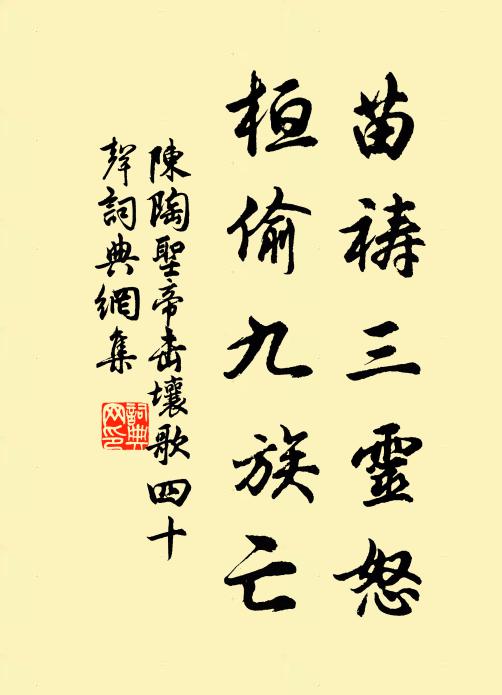 苗祷三靈怒
桓偷九族亡
陳陶聖帝击壤歌四十
聲詞典網集
詞典網印